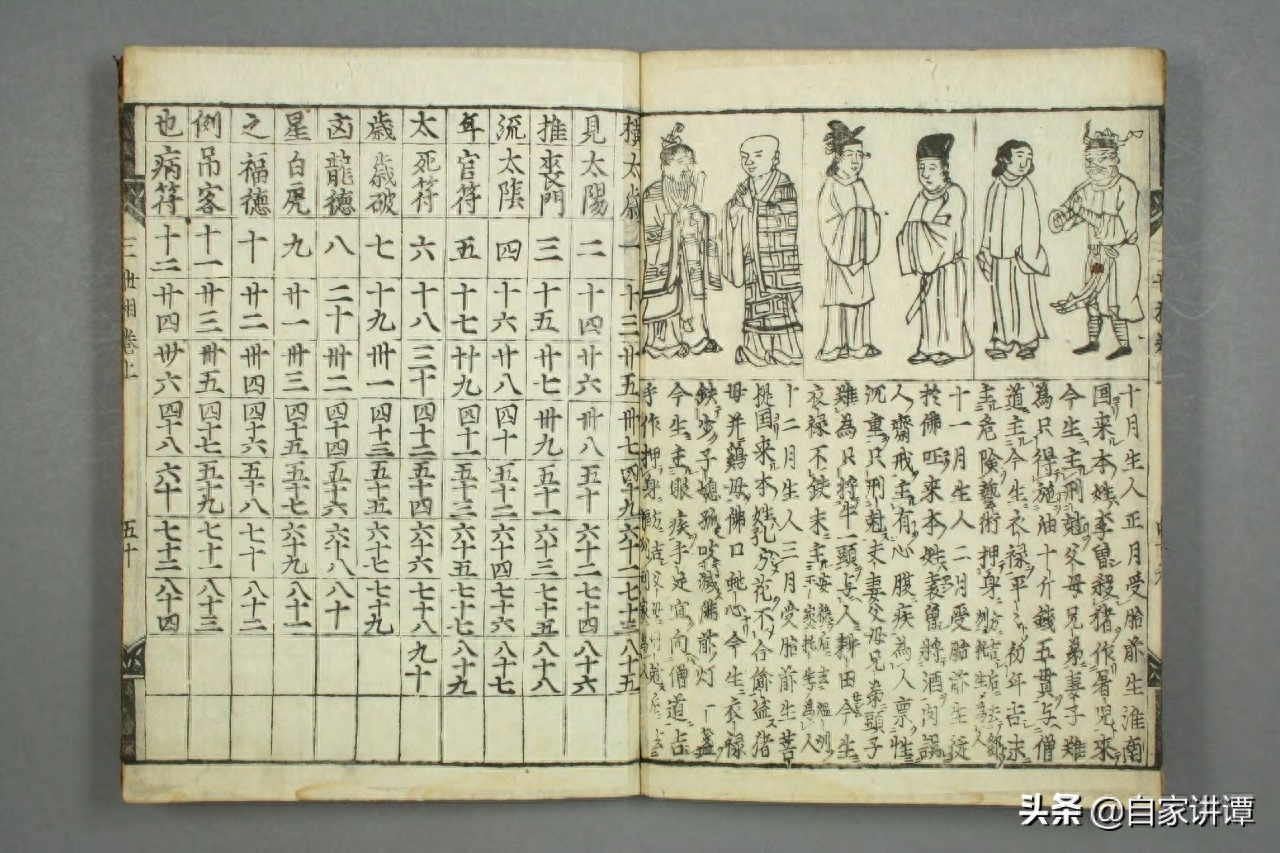 十月生人正月受胎前生淮南
国来本姓李曽殺猪作暑児來
今生主刑尅父母兄弟妻子難
為只得施油十斤錢五貫与僧
道主今生衣禄平〻初年吉末
主危険藝術押身
十一月生人二月受胎前生徒
扵佛吒来本姓裴曽將酒肉誤
人齋戒主有心腹疾為人禀性
沉重只刑尅夫妻父母兄弟頭子
難為只将牛一頭与人耕田今生
衣禄不鉄末主
十二月生人三月受胎前生菩
提国来本姓孔花不合餙盗猪
母并鷄母佛口虵心今生衣禄
鉄少子媳孤吹滅佛前灯一盏
今生主眼疾手足宜向僧道占
手作押身
横太歳 一 十三 廿五 卅七 四十九 六十一 七十三 八十五
見太陽 二 十四 廿六 卅八 五十 六十二 七十四 八十六
推喪門 三 十五 廿七 卅九 五十一 六十三 七十五 八十八
流太陰 四 十六 廿八 四十 五十二 六十四 七十六 八十七
年官符 五 十七 廿九 四十一 五十三 六十五 七十七 八十九
太死符 六 十八 三十 四十二 五十四 六十六 七十八 九十
歳歳破 七 十九 卅一 四十三 五十五 六十七 七十九
凶龍徳 八 二十 卅二 四十四 五十六 六十八 八十
星白虎 九 廿一 卅三 四十五 五十七 六十九 八十一
之福徳 十 廿二 卅四 四十六 五十八 七十 八十二
例吊客 十一 廿三 卅五 四十七 五十九 七十一 八十三
也病符 十二 廿四 卅六 四十八 六十 七十二 八十四
三世相卷上 五十
头条 @自家讲谭